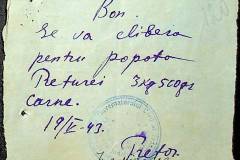 Bon.
Se va elibera
pentru popota
Preturei 3 kg 500 gr
Carne.
19/V-43.
Pretor